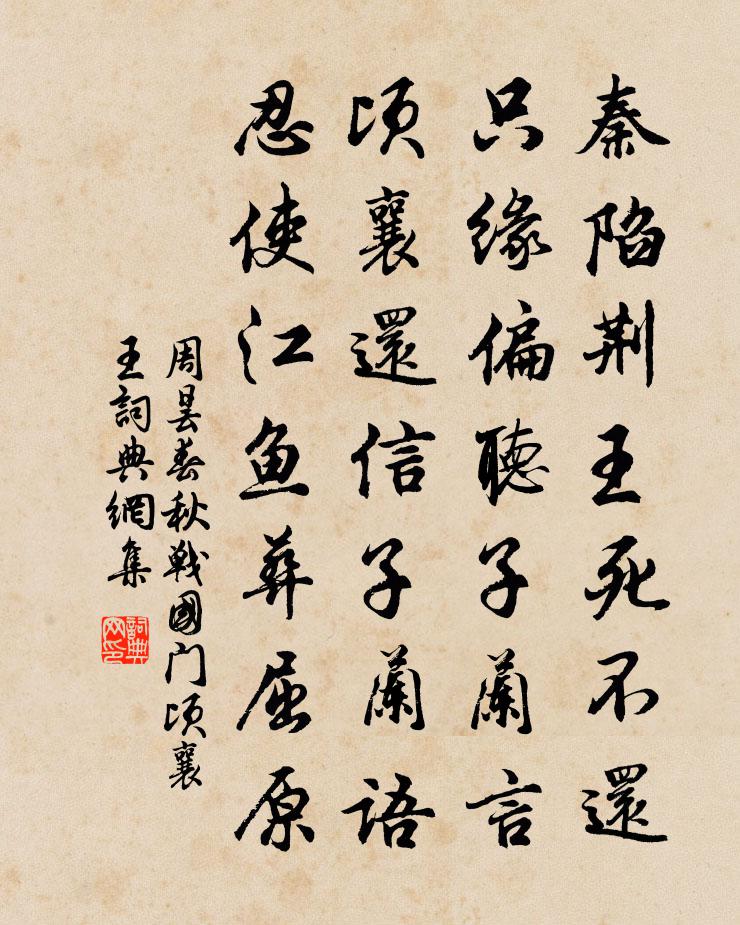 秦陷荆王死不還
只緣偏聽子蘭言
頃襄還信子蘭語
忍使江魚葬屈原
周昙春秋戰國门頃襄
王詞典網集
詞典
网印